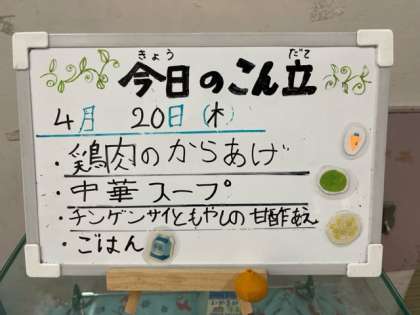 きょう だて
今日のこん立
4月 20日(木)
・鶏肉のからあげ
・中華スープ
・チンゲンサイともやしの甘酢あえ
・ごはん